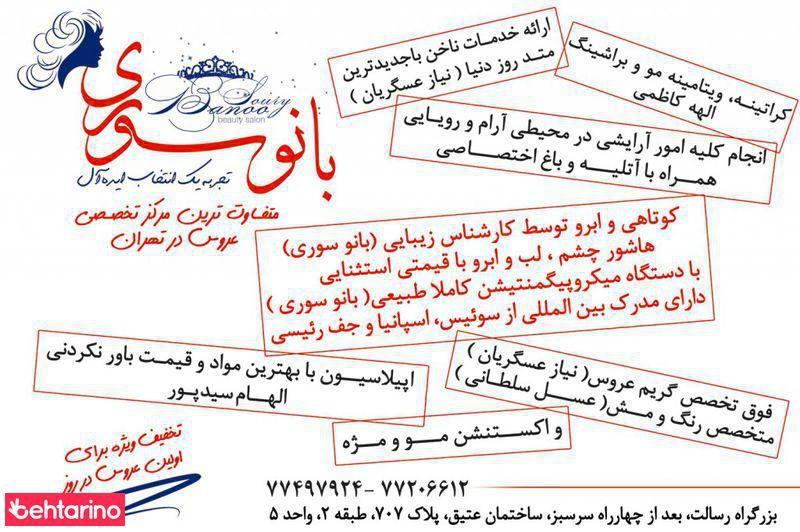 بانو سوری
Banoo Soury
beauty salon
تجربه یک انتخاب ایده‌آل
متفاوت ترین مرکز تخصصی
عروس در تهران
ارائه خدمات ناخن باجدیدترین
متد روز دنیا ( نیاز عسگریان )
کراتینه، ویتامینه مو و براشینگ
الهه کاظمی
انجام کلیه امور آرایشی در محیطی آرام و رویایی
همراه با آتلیه و باغ اختصاصی
کوتاهی و ابرو توسط کارشناس زیبایی (بانو سوری)
هاشور چشم ، لب و ابرو با قیمتی استثنایی
با دستگاه میکروپیگمنتیشن کاملا طبیعی( بانو سوری )
دارای مدرک بین المللی از سوئیس، اسپانیا و جف رئیسی
اپیلاسیون با بهترین مواد و قیمت باور نکردنی
الهام سیدپور
فوق تخصص گریم عروس( نیاز عسگریان )
متخصص رنگ و مش( عسل سلطانی )
و اکستنشن مو و مژه
تخفیف ویژه برای
اولین عروس در روز
۷۷۴۹۷۹۲۴ - ۷۷۲۰۶۶۱۲
بزرگراه رسالت، بعد از چهارراه سرسبز، ساختمان عتیق، پلاک ۷۰۷، طبقه ۲، واحد ۵
behtarino